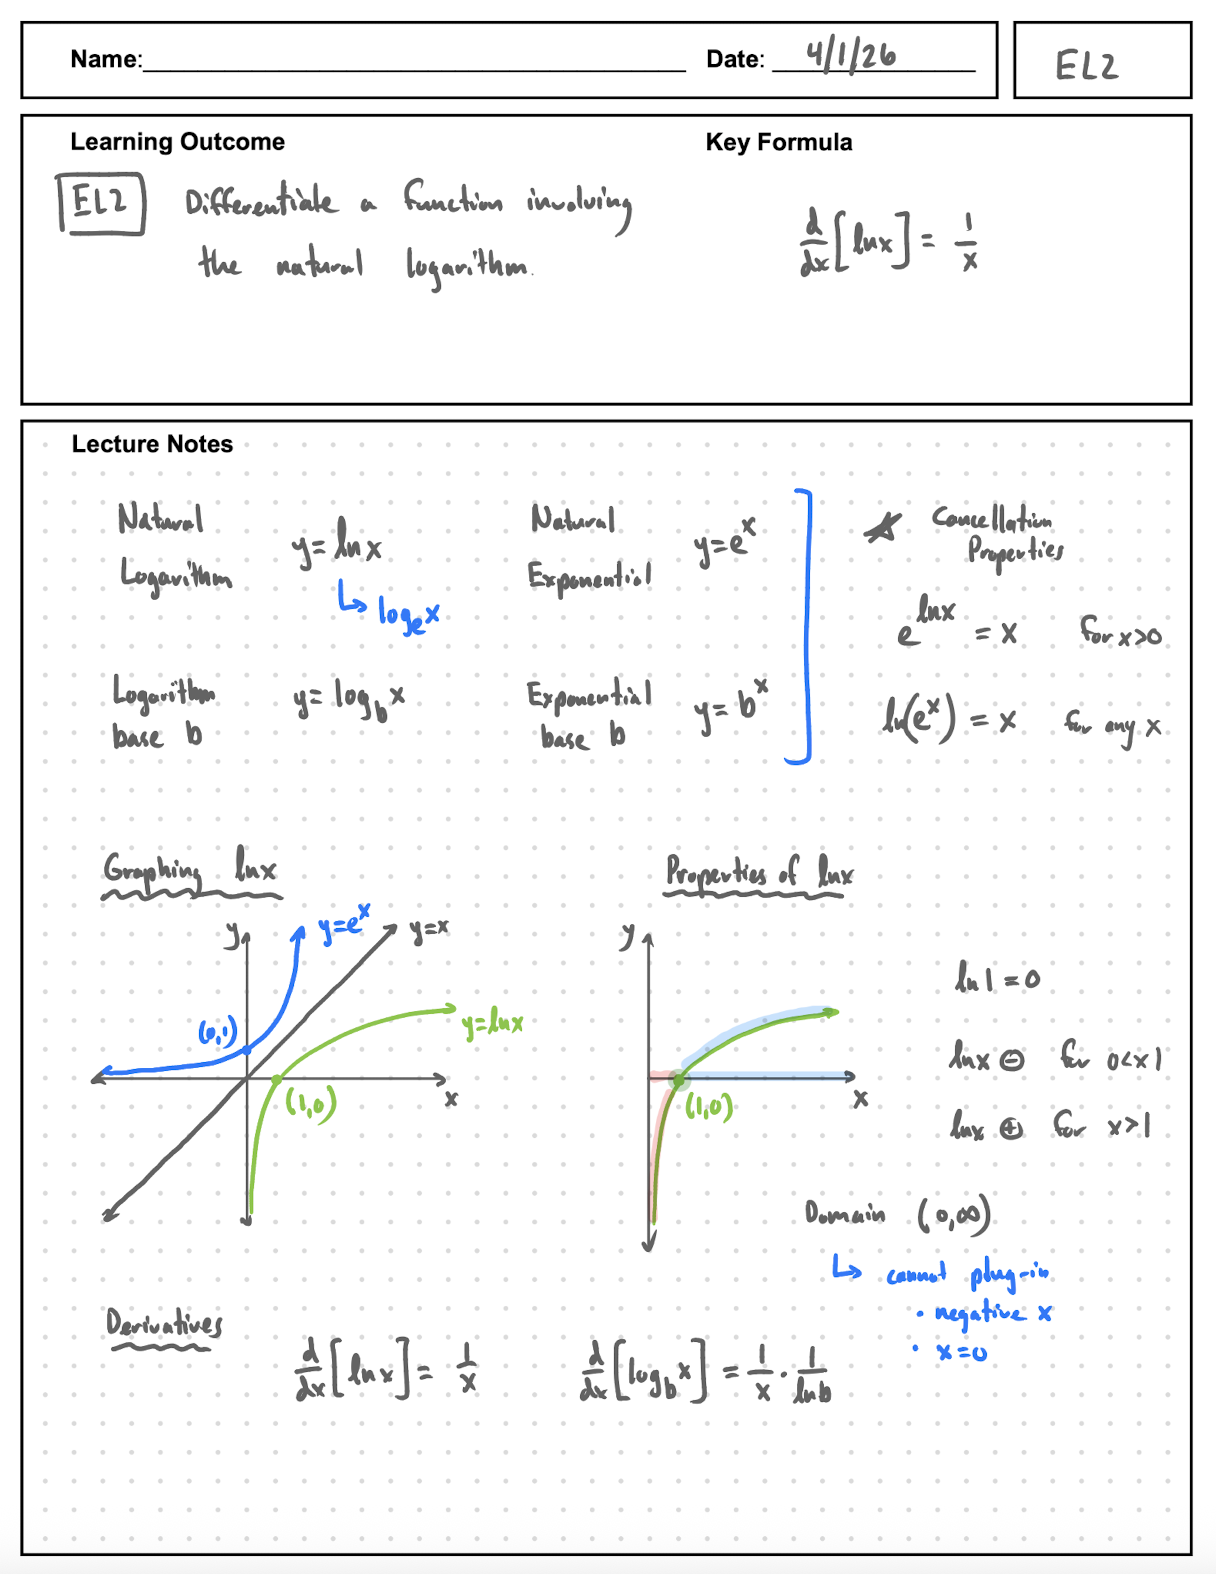 Name: Date: 4/1/26 EL2
Learning Outcome Key Formula
EL2 Differentiate a function involving
the natural logarithm.
d/dx [ln x] = 1/x
Lecture Notes
Natural Logarithm y = ln x
↳ log_e x
Natural Exponential y = e^x
Logarithm base b y = log_b x
Exponential base b y = b^x
★ Cancellation Properties
e^(ln x) = x for x>0
ln(e^x) = x for any x
Graphing ln x
y
y=e^x
y=x
(0,1)
y=ln x
(1,0)
x
Properties of ln x
y
(1,0)
x
ln 1 = 0
ln x ⊖ for 0<x1
ln x ⊕ for x>1
Domain (0,∞)
↳ cannot plug-in
• negative x
• x=0
Derivatives
d/dx [ln x] = 1/x
d/dx [log_b x] = 1/x · 1/ln b